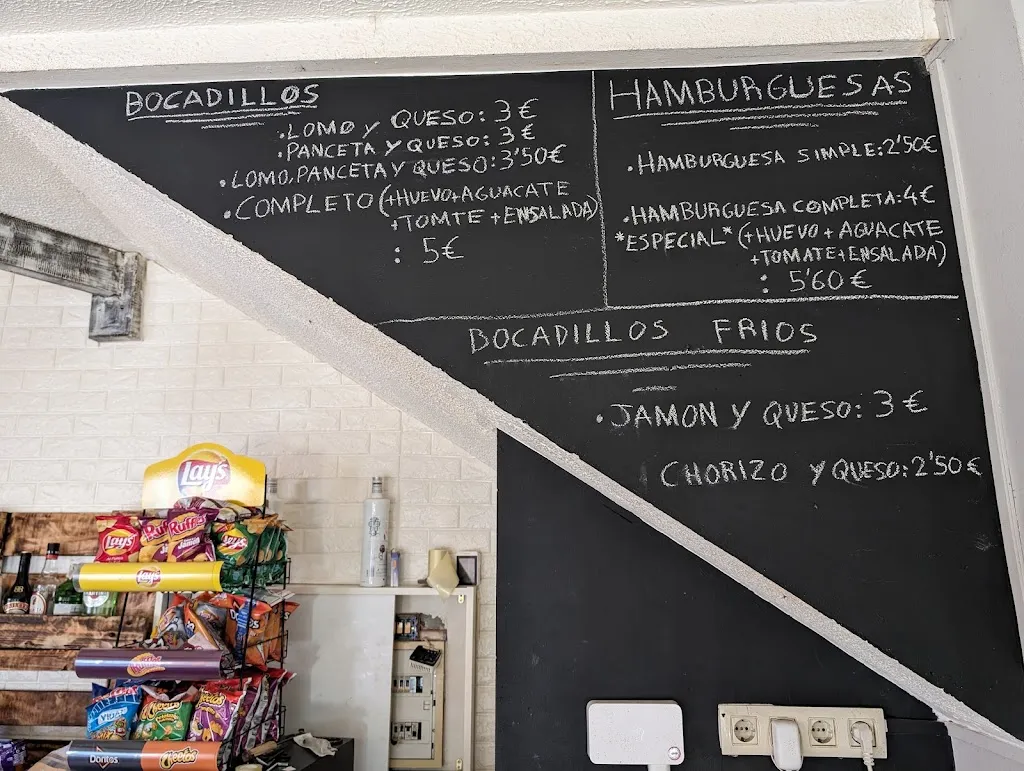 BOCADILLOS
.LOMO Y QUESO: 3€
.PANCETA Y QUESO: 3€
.LOMO, PANCETA Y QUESO: 3'50€
.COMPLETO (+HUEVO+AGUACATE
+TOMTE+ENSALADA)
: 5€
HAMBURGUESAS
.HAMBURGUESA SIMPLE: 2'50€
.HAMBURGUESA COMPLETA: 4€
*ESPECIAL* (+HUEVO + AGUACATE
+TOMATE+ENSALADA)
: 5'60€
BOCADILLOS FRIOS
.JAMON Y QUESO: 3€
CHORIZO Y QUESO: 2'50€
Lay's
Lay's
Ruffles
Lay's
Lay's
Ruffles
Cheetos
Doritos
Cheetos